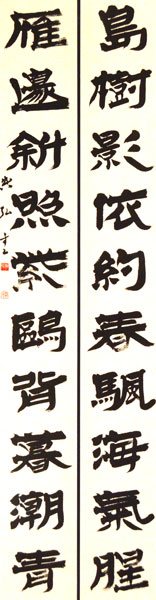 島樹影依約春颿海氣腥
雁邊斜照紫鷗背暮潮青